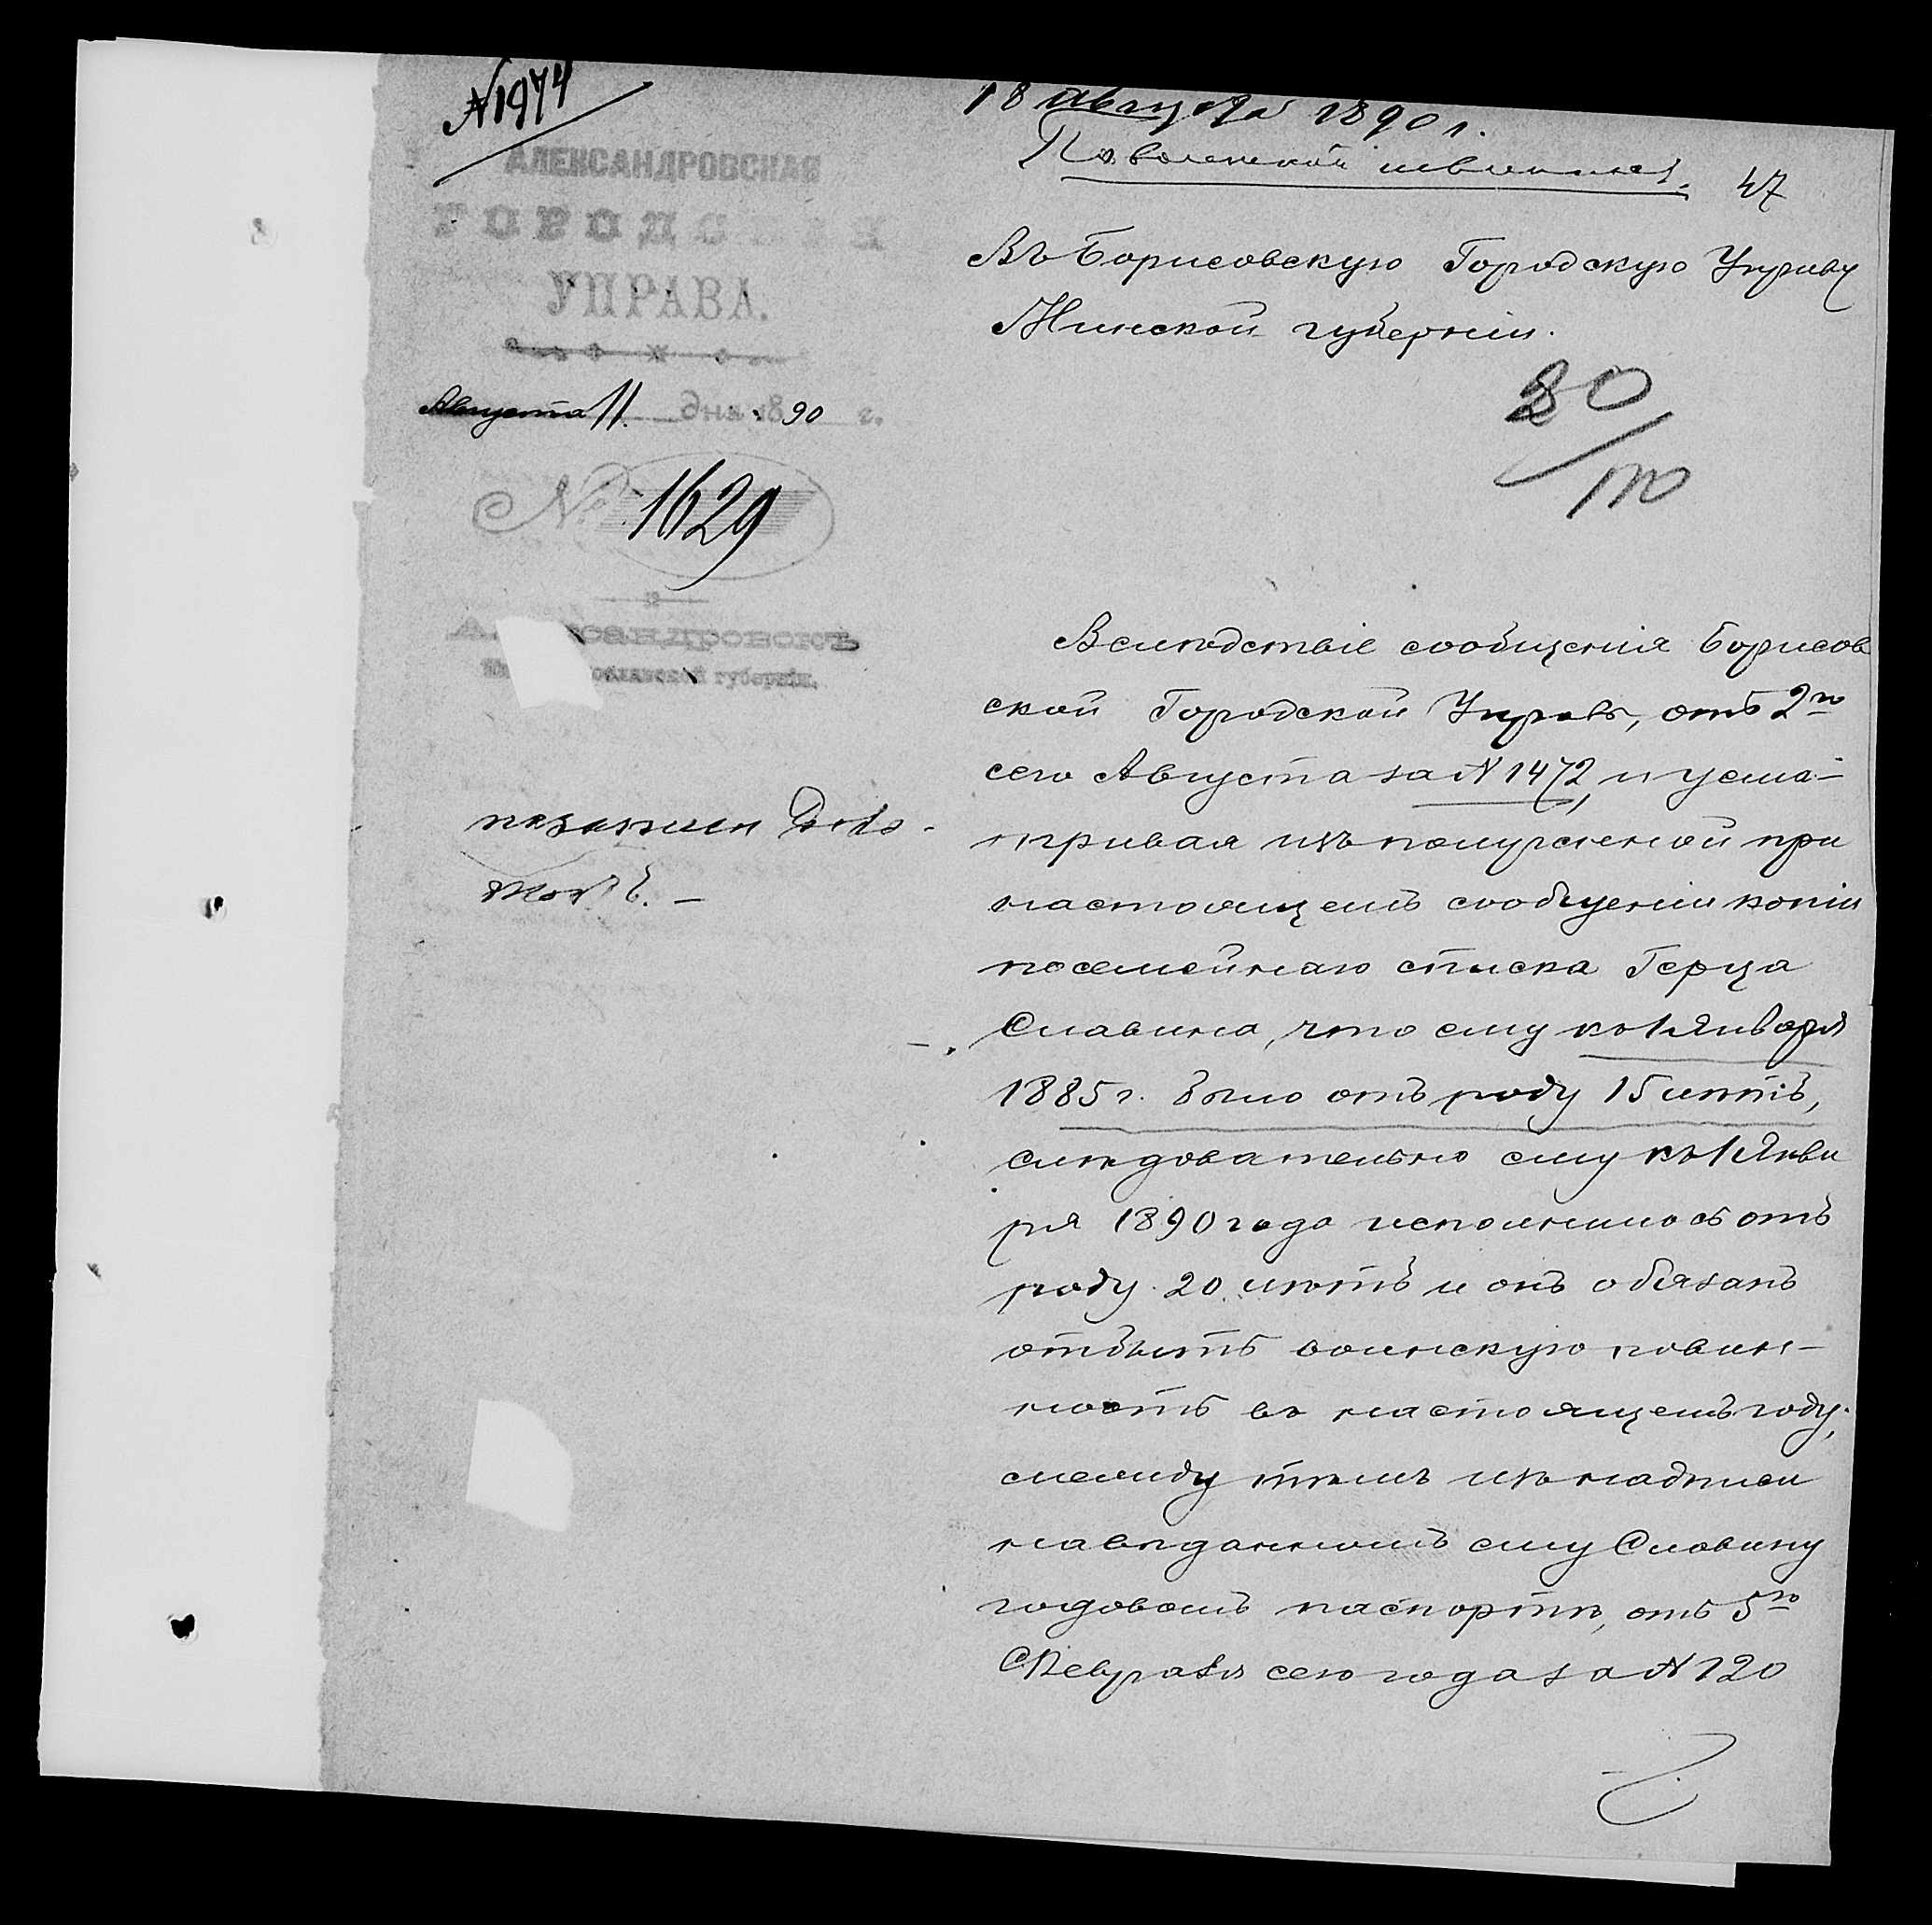 N 1974
АЛЕКСАНДРОВСКАЯ
ГОРОДСКАЯ
УПРАВА.
Августа 11. дня 1890 г.
№ 1629
Александровскъ
губерніи.
18 августа 1890 г.
47
Въ Борисовскую Городскую Управу
Минской губерніи.
Вслѣдствіе сообщенія Борисов
ской Городской Управы, отъ 2го
сего Августа за N 1472, и усма-
тривая изъ полученной при
настоящемъ сообщеніи копіи
посемейнаго списка Герца
Славина, что ему къ 1 Января
1885 г. было отъ роду 15 лѣтъ,
слѣдовательно ему къ 1 Янва
ря 1890 года исполнилось отъ
роду 20 лѣтъ и онъ обязанъ
отбыть воинскую повин-
ность въ настоящемъ году;
между тѣмъ изъ надписи
на выданномъ ему Славину
годовомъ паспортѣ, отъ 5го
Февраля сего года за N 120